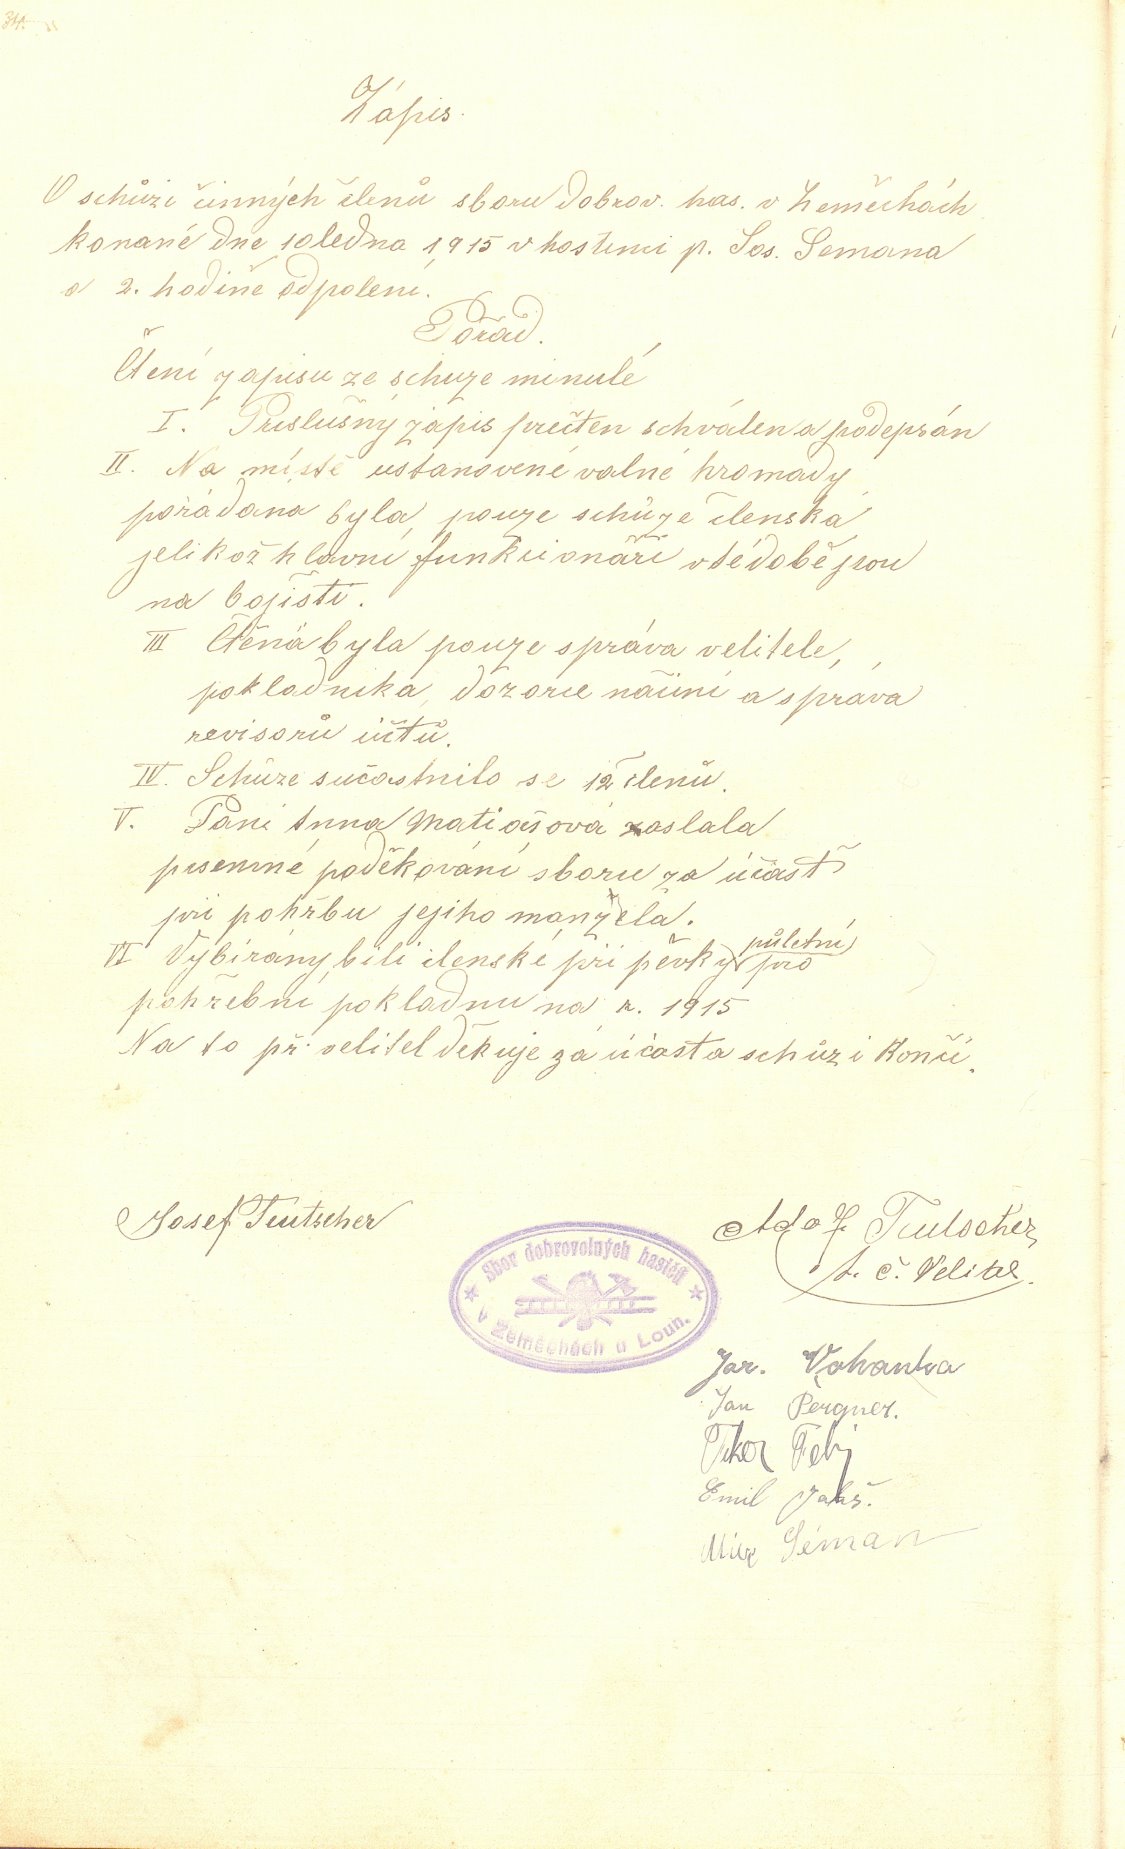 34.
Zápis.
O schůzi činných členů sboru dobrov. has. v Žeměchách
konané dne 10 ledna 1915 v hostinci p. Jos. Semana
o 2. hodině odpolení.
Pořad.
Čtení zapisu ze schuze minulé
I. Přislušný zápis přečten schválen a podepsán
II. Na místě ustanovené valné hromady
pořádana byla pouze schůze členská
jelikož hlavní funkcionáři v té době jsou
na bojišti.
III Čtěná byla pouze správa velitele,
pokladníka, dozorce náčiní a správa
revisorů účtů.
IV. Schůze sučastnilo se 12 členů.
V. Paní Anna Matiašová zaslala
pisemné poděkování sboru za účast
při pohřbu jejiho manžela.
VI Vybírány bili členské při pěvky půletní pro
pohřební pokladnu na r. 1915
Na to př. velitel děkuje za účast a schůzi končí.
Josef Teutscher
Adolf Teutscher
t. č. Velitel.
Sbor dobrovolných hasičů
v Zeměchách u Loun.
Jar. Vohanka
Jan Pergner.
Emil
Seman